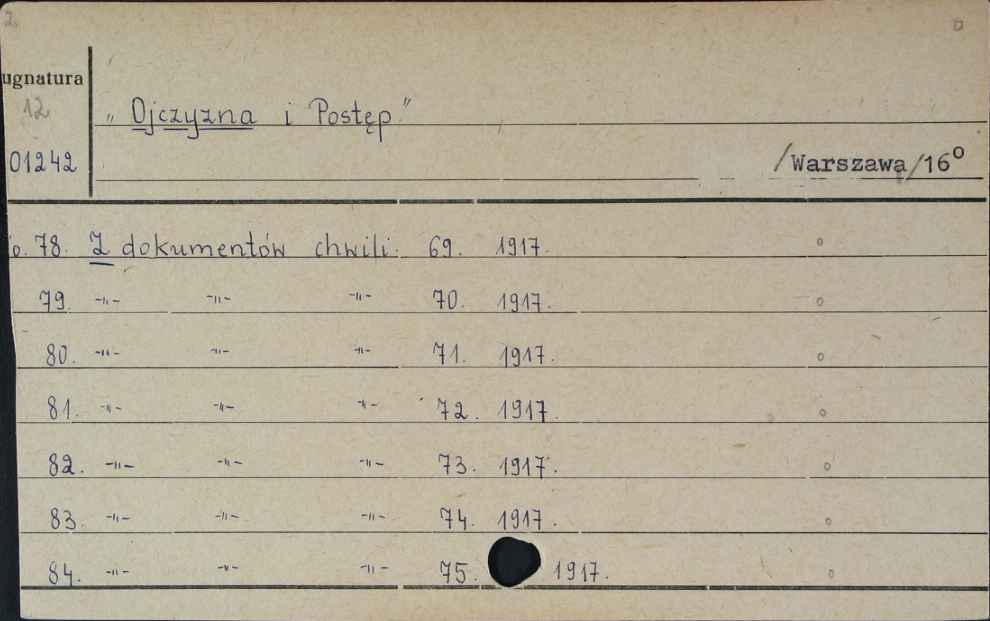 2.
ugnatura
12
„Ojczyzna i Postęp"
01242
/Warszawa/16°
78. Z dokumentów chwili. 69. 1917.
79. -"- -"- -"- 70. 1917.
80. -"- -"- -"- 71. 1917.
81. -"- -"- -"- 72. 1917.
82. -"- -"- -"- 73. 1917.
83. -"- -"- -"- 74. 1917.
84. -"- -"- -"- 75. 1917.